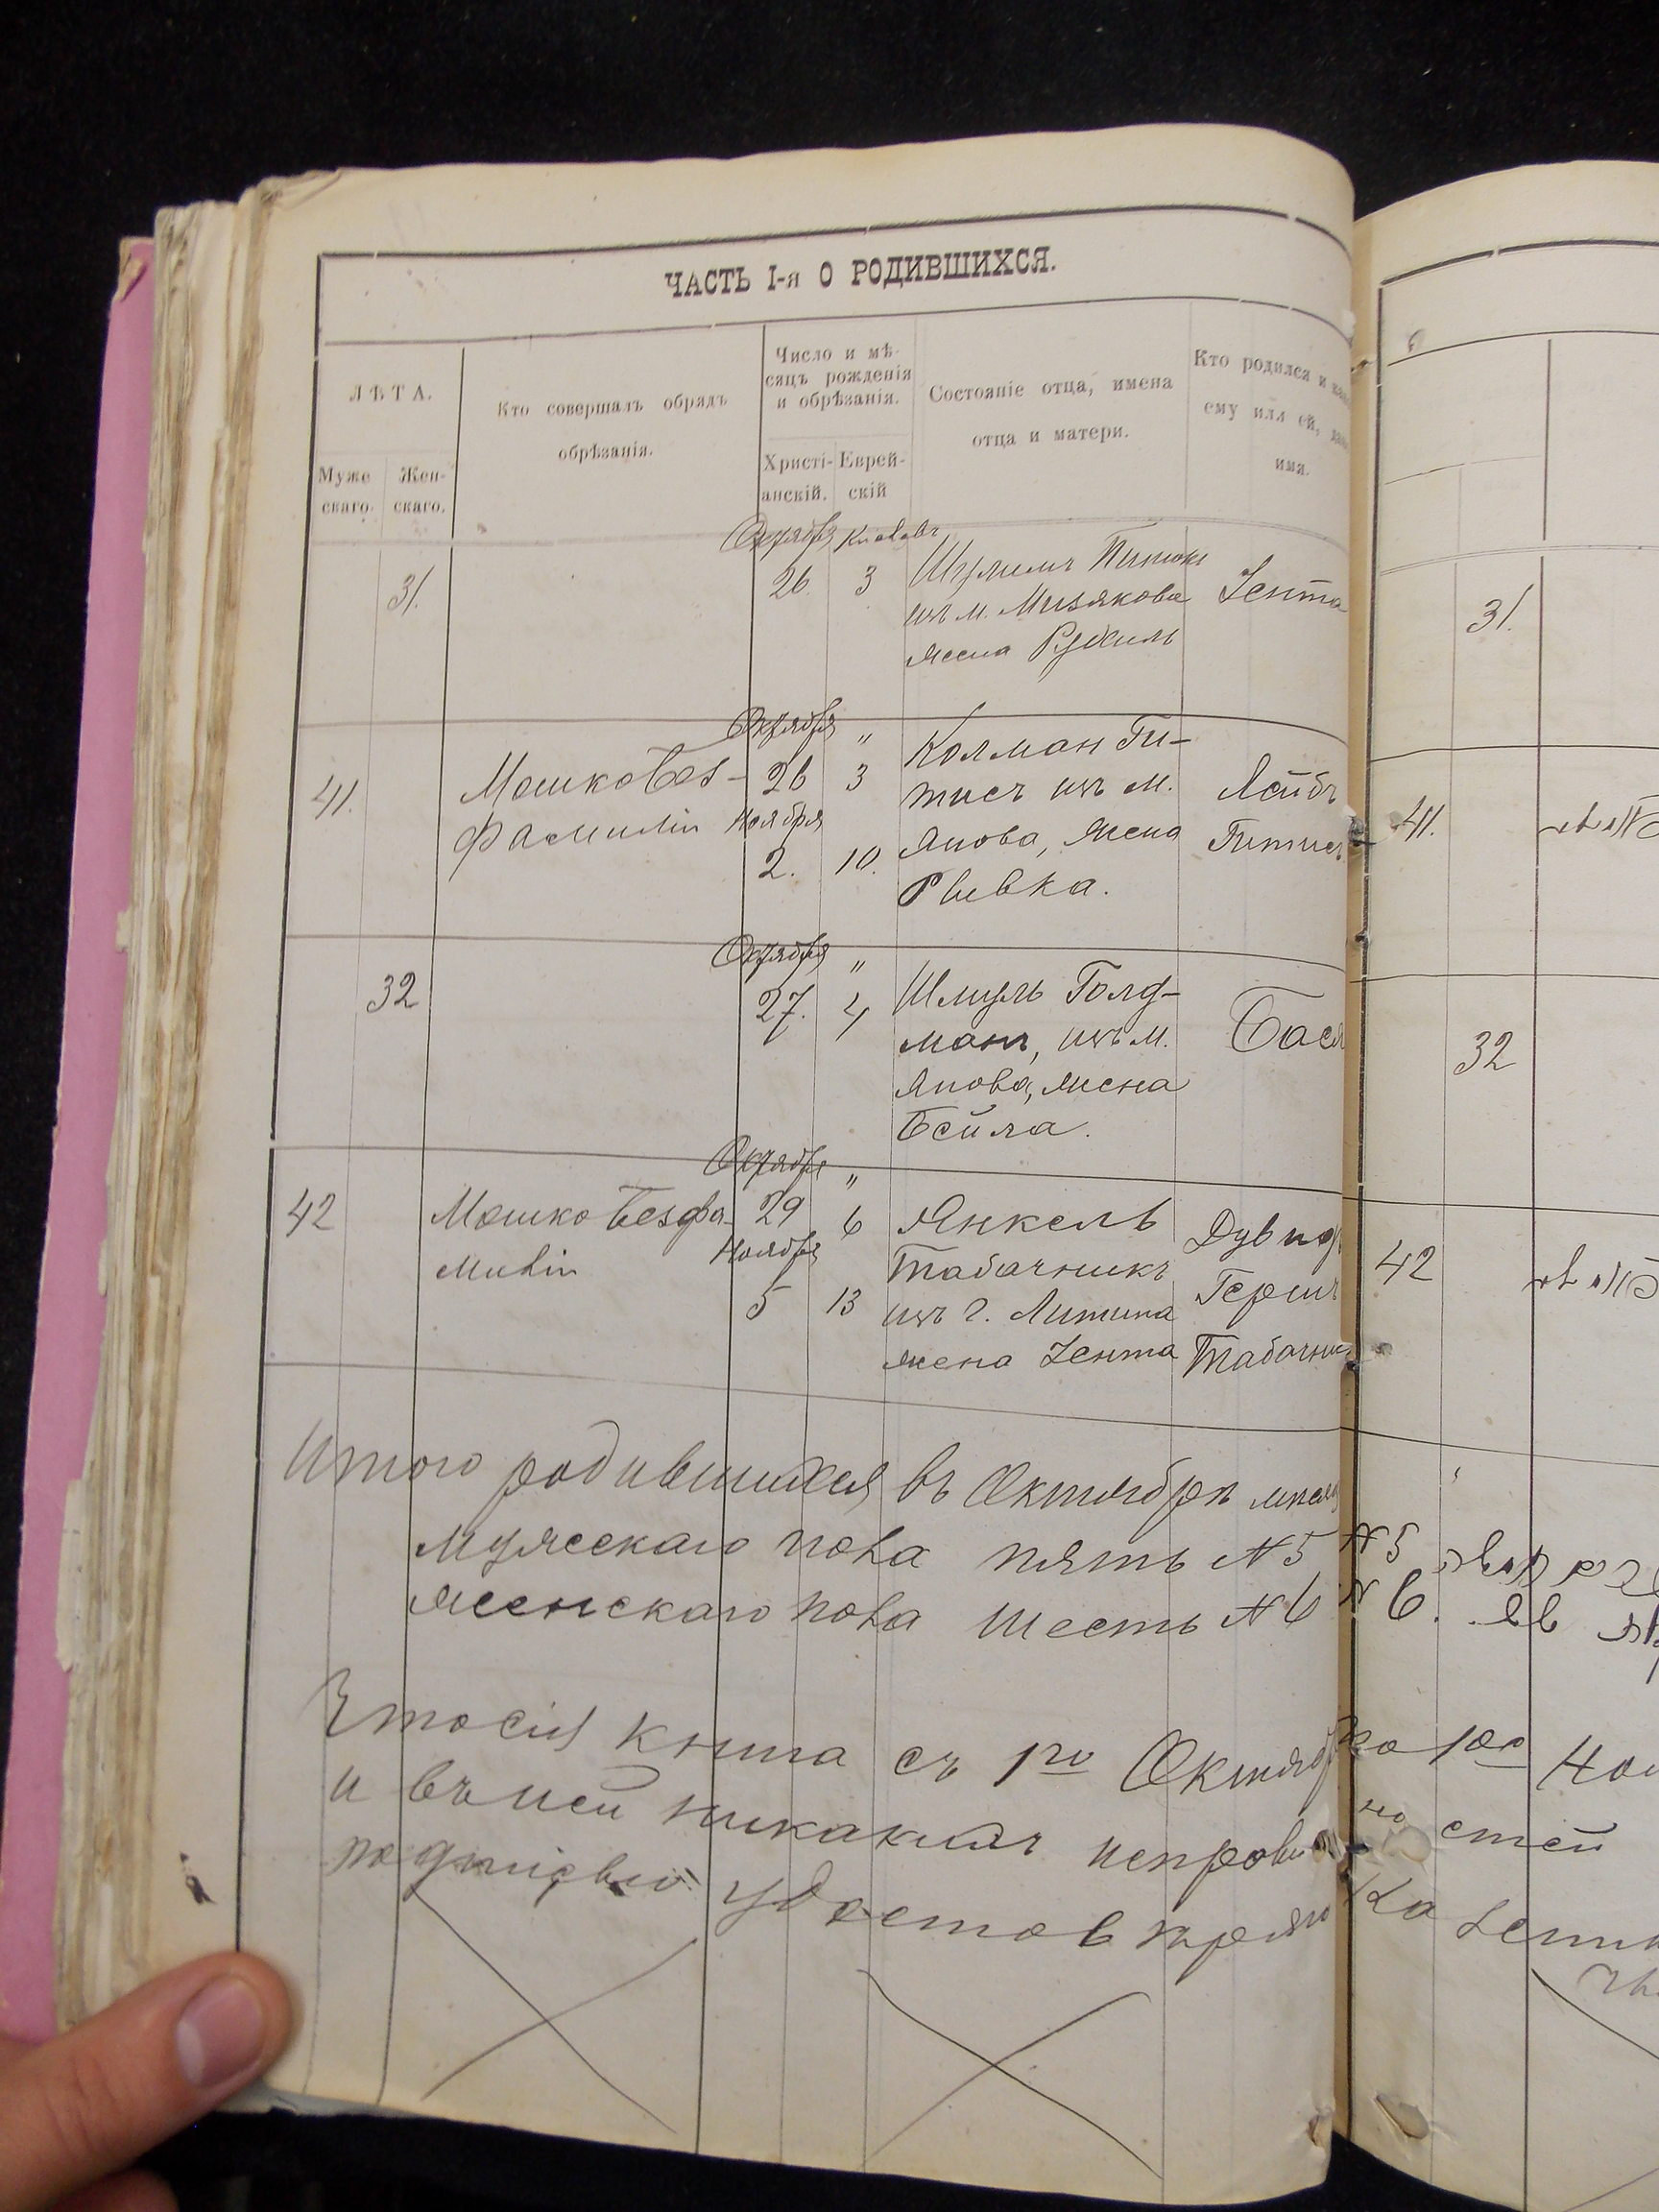 ЧАСТЬ I-я О РОДИВШИХСЯ.
ЛѢТА.
Муже
скаго.
Жен-
скаго.
Кто совершалъ обрядъ
обрѣзанія.
Число и мѣ-
сяцъ рожденія
и обрѣзанія.
Христі-
анскій.
Еврей-
скій
Состояніе отца, имена
отца и матери.
Кто родился и
ему или ей,
имя.
31.
Октября
26.
3
Шулимъ
изъ м. Мизякова
жена Рухиль
Iента
41.
Мошко Без-
фамилій
Октября "
26 3
Ноября
2. 10.
Колман Ги-
тисъ изъ м.
Янова, жена
Ривка.
Лейбъ
Гитисъ
32
Октября "
27. 4
Шмуль Голд-
манъ, изъ м.
Янова, жена
Бейла.
Бася
42
Мошко Безфа-
милій
Октября "
29 6
Ноября
5 13
Янкель
Табачникъ
изъ г. Литина
жена Iента
Дувид
Гершъ
Табачник
Итого родившихся въ Октябрѣ
мужескаго пола пять №5
женскаго пола шесть №6
Что сія книга съ 1го Октяб
и въ ней никакихъ исправ
подписью удостовѣряю
31.
41.
32
42
№5
№6.
по 1ое
ностей